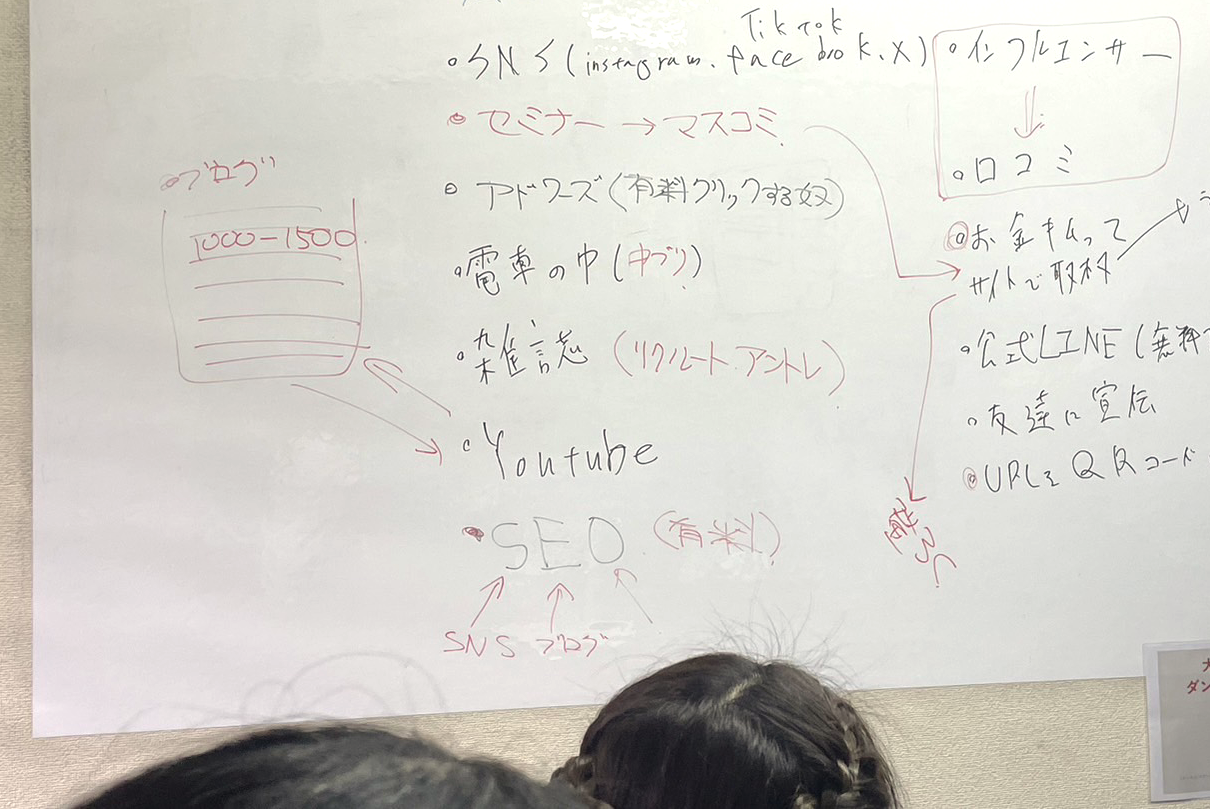 TikTok
・SNS(instagram、facebook、X)
・セミナー→マスコミ
・アドワーズ(有料クリックする奴)
・電車の中(中づり)
・雑誌(リクルート アントレ)
・Youtube
・SEO(有料)
SNS ブログ
・ブログ
1000-1500
・インフルエンサー
↓
・口コミ
・お金払って
サイトで取材
・公式LINE(無料
・友達に宣伝
・URLを QRコード